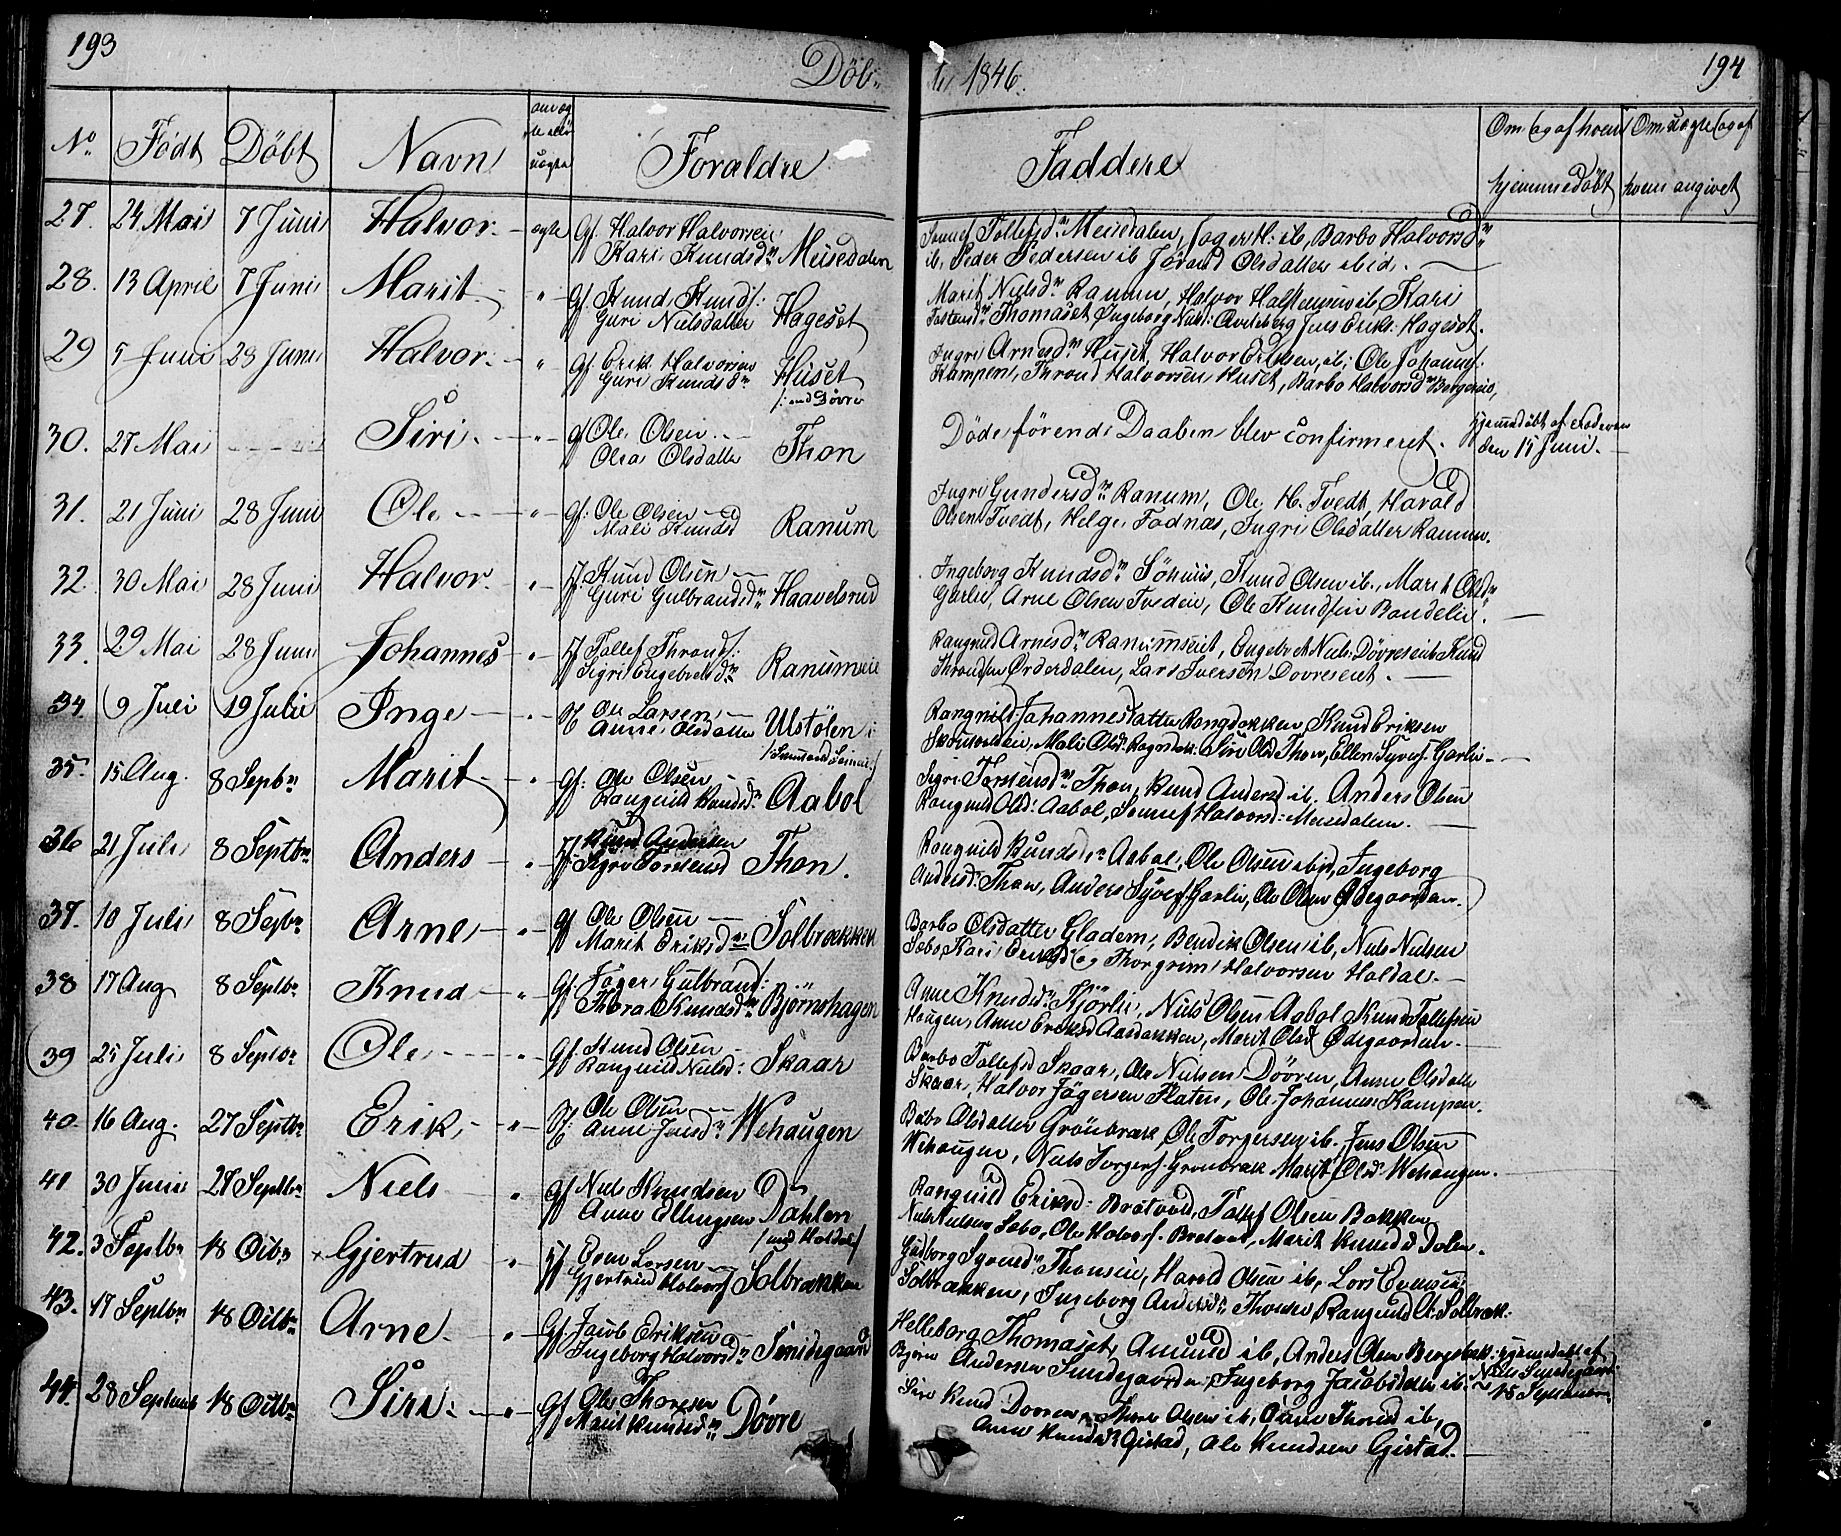 193
Döb-
te, 1846.
194
No. Födt Döbt Navn om ægte eller uægte Forældre Faddere Om og af hvem hjemmedöbt Om uægte og af hvem angivet
27. 24 Mai 7 Juni Halvor. ægte Gf. Halvor Halvorsen
Kari Knudsdr Meisedalen
Tollefsdr Meisedalen, Barbo Halvorsdr
ib, Peder Pedersen ib Jörand Olsdatter ibid.
28. 13 April 7 Juni Marit. " Gf Knud Knuds:
Guri Nielsdatter Hageset
Marit Nielsdr Ranum, Halvor Halstensen ib, Kari
Thomaset Ingeborg Niels: Jens Eriks: Hageset.
29 5 Juni 28 Juni Halvor. " Gf Erik Halvorsen
Guri Knudsdr Huset
/: and Dövre
Ingri Arnesdr Huset, Halvor Eriksen, ib, Ole Johannes:
Kampen, Thrond Halvorsen Huset, Barbo Halvorsdr
30. 27 Mai Siri. " Gf Ole Olsen
Olea Olsdatter Thon
Döde förend Daaben blev confirmeret.
hjemmedöbt af Faderen
den 15 Juni.
31. 21 Juni 28 Juni Ole " Gf: Ole Olsen
Mali Knudsd Ranum
Ingri Gundersdr Ranum, Ole H. Tvedt, Harald
Olsen Tvedt, Helge Fodnæs, Ingri Olsdatter Ranum.
32. 30 Mai 28 Juni Halvor. " Gf Knud Olsen
Guri Gulbrandsdr Haavelsrud
Ingeborg Knudsdr Knud Olsen ib, Marit Olsdr
Garlie, Arne Olsen Tveden, Ole Knudsen Bandelie.
33. 29 Mai 28 Juni Johannes " Gf Tollef Thronds:
Sigri Engebretsdr Ranumeie
Rangnild Arnesdr Ranumseiet, Engebret Niels: Dövreseiet Knud
Throndsen Örderdalen, Lars Iversen Dovreseiet.
34. 9 Juli 19 Julii Inge " Gf Ole Larsen
Anne Olsdatter Ulstölen
Rangnild Johannesdatter Rongdokken, Knud Eriksen
Mali Olsd: Siri Olsd Thon, Ellen Syvers: Garlie
35. 15 Aug. 8 Septbr Marit. " Gf: Ole Olsen
Rangnild Knudsdr Aabol
Sigri Torstensdr Thon, Knud Andersd ib. Anders Olsen
Rangnild Olsd: Aabol, Halvors: Meisedalen.
36 21 Juli 8 Septbr Anders " Gf: Knud Andersen
Sigri Torstensd Thon.
Rangnild Knudsdr Aabol, Ole Olsen ibid, Ingeborg
Andersd: Thon, Anders Syvers: Garlie, Ole Olsen Ödegaarden.
37. 10 Juli 8 Septbr Arne " Gf Ole Olsen
Marit Eriksdr Solbrækken
Barbo Olsdatter Gladem, Bendik Olsen ib, Niels Nielsen
Sebo, Kari Eriksd og Thorgrim Halvorsen Haldal.
38 17 Aug 8 Septbr Knud " Gf Jöger Gulbrands:
Thora Knudsdr Björnshagen
Anne Knudsdr Kjörlie, Niels Olsen Aabol Knud Tollefsen
Haugen, Anne Eriksd Marit Olsd Ödegaarden.
39 25 Juli 8 Septbr Ole " Gf Knud Olsen
Rangnild Nielsd: Skaar
Barbo Tollefsd Skaar, Ole Nielsen Dövren, Anne Olsdatter
Skaar, Halvor Jögersen Platen, Ole Johannesen Kampen.
40. 16 Aug. 27 Septbr Erik, " Gf: Ole Olsen
Anne Jensdr Wehaugen
Olsdatter Grönbræk Ole Torgersen ib. Jens Olsen
Wehaugen, Niels Torgers: Grönbræk Marit Olsd: Wehaugen.
41 30 Juni 27 Septbr Niels " Gf Niels Knudsen
Anne Ellingsen Dahlen
/ und Haldal /
Rangnild Eriksd: Bratvold, Tollef Olsen Bakken
Niels Nielsen Sebo, Ole Halvors: Marit Knudsd Dalen.
42. 3 Septbr 18 Octbr Gjertrud " Gf Even Larsen
Gjertrud Halvors: Solbrækken
Gudborg Thonseie, Harald Olsen ib, Lars Evensen
Solbrækken, Ingeborg Andersd: Rangnild A. Solbræk:
43. 17 Septbr 18 Octbr Arne. " Gf: Jacob Eriksen
Ingeborg Halvorsdr Smidegaard
Helleborg Thomaset, Amund ib, Anders Olsen hjemmedöbt af
Björn Andersen Smidegaarden, Ingeborg Jacobsdatter ib. Niels Smidegaard
15 September
44. 28 Septemb 18 Octbr Siri. " Gf Ole Thoresen
Marit Knudsdr Dövre
Siri Knud Dovren, Thore Olsen ib, Anne Thoresd ib,
Anne Knudsdr Gistad, Ole Knudsen Gistad.